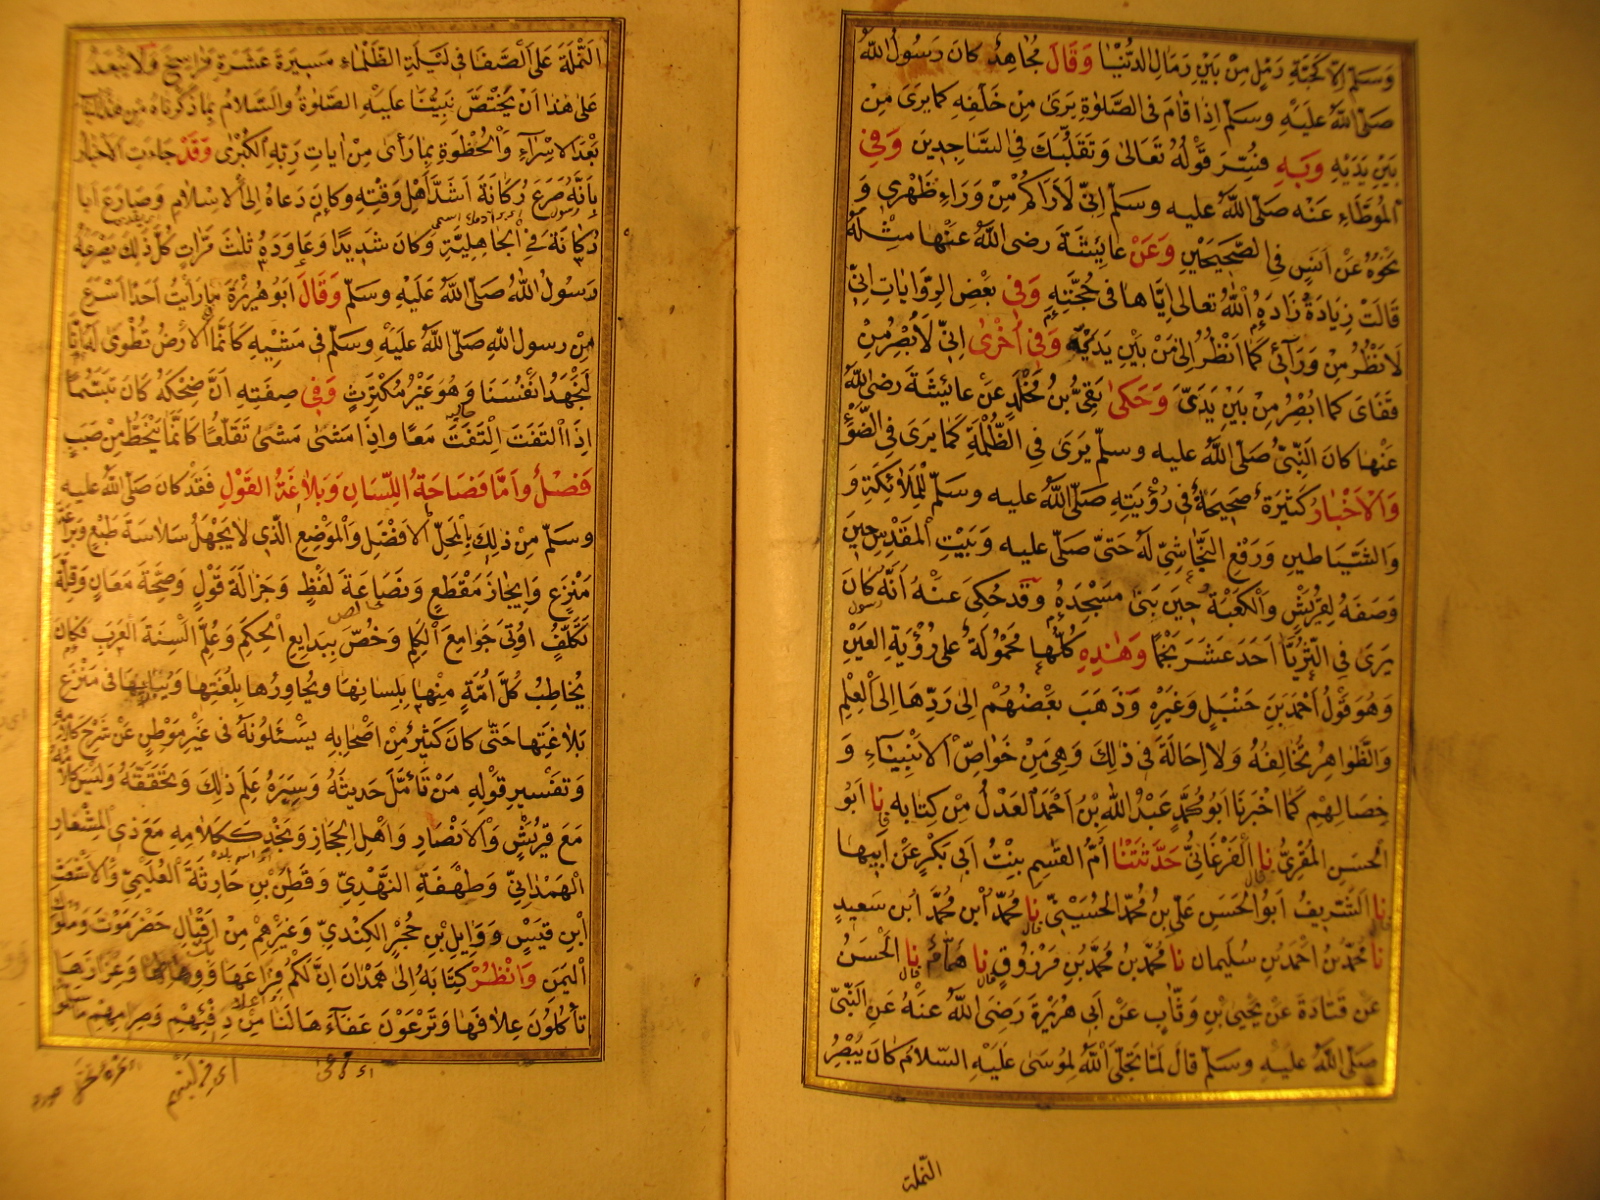 وَسَلَّم اِلَّا كَحَبَّةِ رَمْلٍ مِنْ بَيْنِ رِمَالِ الدُّنْيَا وَقَالَ مُجَاهِدٌ كَانَ رَسُولُ اللّٰهِ
صَلَّى اللّٰهُ عَلَيْهِ وَسَلَّمَ اِذَا قَامَ فِى الصَّلٰوةِ يَرَىٰ مِنْ خَلْفِهِ كَمَا يَرَىٰ مِنْ
بَيْنِ يَدَيْهِ وَبِهِ فُسِّرَ قَوْلُهُ تَعَالىٰ وَتَقَلُّبَكَ فِى السَّاجِدِينَ وَفِى
الْمُوَطَّاءِ عَنْه صَلَّى اللّٰهُ عليه وسَلَّمَ اِنِّى لَاَرَاكُمْ مِنْ وَرَاءِ ظَهْرِى وَ
نَحْوُهُ عَنْ اَنَسٍ فِى الصَّحِيحَيْنِ وَعَنْ عَايِشَةَ رضى اللّٰهُ عَنْهَا مِثْلَهُ
قَالَتْ زِيَادَةٌ زَادَهُ اللّٰهُ تعالى اِيَّاهَا فِى حُجَّتِهِ وَفِى بَعْضِ الرِّوَايَاتِ اِنِّى
لَاَنْظُرُ مِنْ وَرَآئِى كَمَا اَنْظُرُ اِلىٰ مَنْ بَيْنِ يَدَىَّ وَفِى اُخْرىٰ اِنِّى لَاُبْصِرُ مِنْ
قَفَاىَ كما اُبْصِرُ مِنْ بَيْنِ يَدَىَّ وَحَكىٰ بَقِىُّ بْنُ مُخْلَدٍ عَنْ عَائِشَةَ رضى اللّٰهُ
عَنْهَا كَانَ النَّبِىُّ صَلَّى اللّٰهُ عليه وسلّم يَرَىٰ فِى الظُّلْمَةِ كَمَا يَرَىٰ فِى الضَّوْءِ
وَالْاَخْبَارُ كَثِيرَةٌ صَحِيحَةٌ فِى رُؤْيَتِهِ صَلَّى اللّٰهُ عليه وسلّم لِلْمَلَائِكَةِ وَ
وَالشَّيَاطِينِ وَرَفْعِ النَّجَّاشِىِّ لَهُ حَتّىٰ صَلّى عليه وَبَيْتِ الْمَقْدِسِ حِينَ
وَصَفَهُ لِقُرَيْشٍ وَالْكَعْبَةِ حِينَ بَنىٰ مَسْجِدَهُ وَقَدْ حُكِىَ عَنْهُ اَنَّهُ كَانَ
يَرىٰ فِى الثُّرَيَّا اَحَدَ عَشَرَ نَجْمًا وَهٰذِهِ كُلُّهَا مَحْمُولَةٌ عَلىٰ رُؤْيَةِ الْعَيْنِ
وَهُوَ قَوْلُ اَحْمَدَ بْنِ حَنْبَلٍ وَغَيْرِهِ وَذَهَبَ بَعْضُهُمْ اِلىٰ رَدِّهَا اِلَى الْعِلْمِ
وَالظَّوَاهِرُ تُخَالِفُهُ وَلَا اِحَالَةَ فِى ذٰلِكَ وَهِىَ مِنْ خَوَاصِّ الْاَنْبِيَاءِ وَ
خِصَالِهِمْ كَمَا اَخْبَرَنَا اَبُو مُحَمَّدٍ عَبْدُ اللّٰهِ بْنُ اَحْمَدَ الْعَدْلُ مِنْ كِتَابِهِ نا اَبُو
الْحَسَنِ الْمُقْرِىُّ نا الْفَرْغَانِىُّ حَدَّثَتْنَا اُمُّ الْقٰسِمِ بِنْتُ اَبِى بَكْرٍ عَنْ اَبِيهَا
نا الشَّرِيفُ اَبُو الْحَسَنِ عَلِىُّ بْنُ مُحَمَّدٍ الْحُسَيْنِىُّ نا مُحَمَّدُ ابْنُ مُحَمَّدِ ابْنِ سَعِيدٍ
نا مُحَمَّدُ بْنُ اَحْمَدَ بْنِ سُلَيْمَان نا مُحَمَّدُ بْنُ مُحَمَّدِ بْنِ مَرْزُوقٍ نا هَمَّامٌ نا الْحَسَنُ
عَنْ قَتَادَةَ عَنْ يَحْيىٰ بْنِ وَثَّابٍ عَنْ اَبِى هُرَيْرَةَ رَضِىَ اللّٰهُ عَنْهُ عَنِ النَّبِىِّ
صَلَّى اللّٰهُ عليهِ وَسَلَّمَ قَالَ لَمَّا تَجَلَّى اللّٰهُ لِمُوسىٰ عَلَيْهِ السَّلَامُ كَانَ يُبْصِرُ
النَّملة
النَّمْلَةَ عَلَى الصَّفَا فِى لَيْلَةِ الظَّلْمَاءِ مَسِيرَةَ عَشَرَةِ فَرَاسِخَ وَلَا يَبْعُدُ
عَلىٰ هٰذَا اَنْ يُخْتَصَّ نَبِيُّنَا عَلَيْهِ الصَّلٰوةُ وَالسَّلَامُ بِمَا ذَكَرْنَاهُ مِنْ هٰذَا الْبَابِ
بَعْدَ الْاِسْرَاءِ وَالْحُظْوَةِ بِمَا رَأىٰ مِنْ اٰيَاتِ رَبِّهِ الْكُبْرىٰ وَقَدْ جَاءَتِ الْاَخْبَارُ
بِاَنَّهُ صَرَعَ رُكَانَةَ اَشَدَّ اَهْلِ وَقْتِهِ وَكَانَ دَعَاهُ اِلَى الْاِسْلَامِ وَصَارَعَ اَبَا
رُكَانَةَ فِى الْجَاهِلِيَّةِ وَكَانَ شَدِيدًا وَعَاوَدَهُ ثَلٰثَ مَرَّاتٍ كُلَّ ذٰلِكَ يَصْرَعُهُ
رَسُولُ اللّٰهِ صَلَّى اللّٰهُ عَلَيْهِ وَسَلَّمَ وَقَالَ اَبُو هُرَيْرَةَ مَا رَاَيْتُ اَحَدًا اَسْرَعَ
مِنْ رسولِ اللّٰهِ صَلَّى اللّٰهُ عَلَيْهِ وَسَلَّمَ فِى مَشْيِهِ كَاَنَّمَا الْاَرْضُ تُطْوىٰ لَهُ اِنَّا
لَنُجْهِدُ اَنْفُسَنَا وَهُوَ غَيْرُ مُكْتَرِثٍ وَفِى صِفَتِهِ اَنَّ ضِحْكَهُ كَانَ تَبَسُّمًا
اِذَا الْتَفَتَ اِلْتَفَتَ مَعًا وَاِذَا مَشىٰ مَشىٰ تَقَلُّعًا كَاَنَّمَا يَنْحَطُّ مِنْ صَبَبٍ
فَصْلٌ وَاَمَّا فَصَاحَةُ اللِّسَانِ وَبَلَاغَةُ الْقَوْلِ فَقَدْ كَانَ صَلَّى اللّٰهُ عليهِ
وسَلَّمَ مِنْ ذٰلِكَ بِالْمَحَلِّ الْاَفْضَلِ وَالْمَوْضِعِ الَّذِى لَا يُجْهَلُ سَلَاسَةَ طَبْعٍ وَبَرَاعَةَ
مَنْزِعٍ وَاِيجَازَ مَقْطَعٍ وَنَصَاعَةَ لَفْظٍ وَجَزَالَةَ قَوْلٍ وَصِحَّةَ مَعَانٍ وَقِلَّةَ
تَكَلُّفٍ اُوتِىَ جَوَامِعَ الْكَلِمِ وَخُصَّ بِبَدَايِعِ الْحِكَمِ وَعُلِّمَ اَلْسِنَةَ الْعَرَبِ فَكَانَ
يُخَاطِبُ كُلَّ اُمَّةٍ مِنْهَا بِلِسَانِهَا وَيُحَاوِرُهَا بِلُغَتِهَا وَيُبَارِيهَا فِى مَنْزَعِ
بَلَاغَتِهَا حَتّىٰ كَانَ كَثِيرٌ مِنْ اَصْحَابِهِ يَسْئَلُونَهُ فِى غَيْرِ مَوْطِنٍ عَنْ شَرْحِ كَلَامِهِ
وَتَفْسِيرِ قَوْلِهِ مَنْ تَاَمَّلَ حَدِيثَهُ وَسِيَرَهُ عَلِمَ ذٰلِكَ وَتَحَقَّقَهُ وَلَيْسَ كَلَامُهُ
مَعَ قُرَيْشٍ وَالْاَنْصَارِ وَاَهْلِ الْحِجَازِ وَنَجْدٍ كَكَلَامِهِ مَعَ ذِى الْمِشْعَارِ
الْهَمْدَانِىِّ وَطِهْفَةَ النَّهْدِىِّ وَقَطَنِ بْنِ حَارِثَةَ الْعُلَيْمِىِّ وَالْاَشْعَثِ
ابْنِ قَيْسٍ وَوَايِلِ بْنِ حُجْرٍ الْكِنْدِىِّ وَغَيْرِهِمْ مِنْ اَقْيَالِ حَضْرَمَوْتَ وَمُلُوكِ
الْيَمَنِ وَانْظُرْ كِتَابَهُ اِلىٰ هَمْدَانَ اِنَّ لَكُمْ فِرَاعَهَا وَوِهَاطَهَا وَعَزَازَهَا
تَاْكُلُونَ عِلَافَهَا وَتَرْعَوْنَ عَفَاءَهَا لَنَا مِنْ دِفْئِهِمْ وَصِرَامِهِمْ مَا سَلَّمُوا